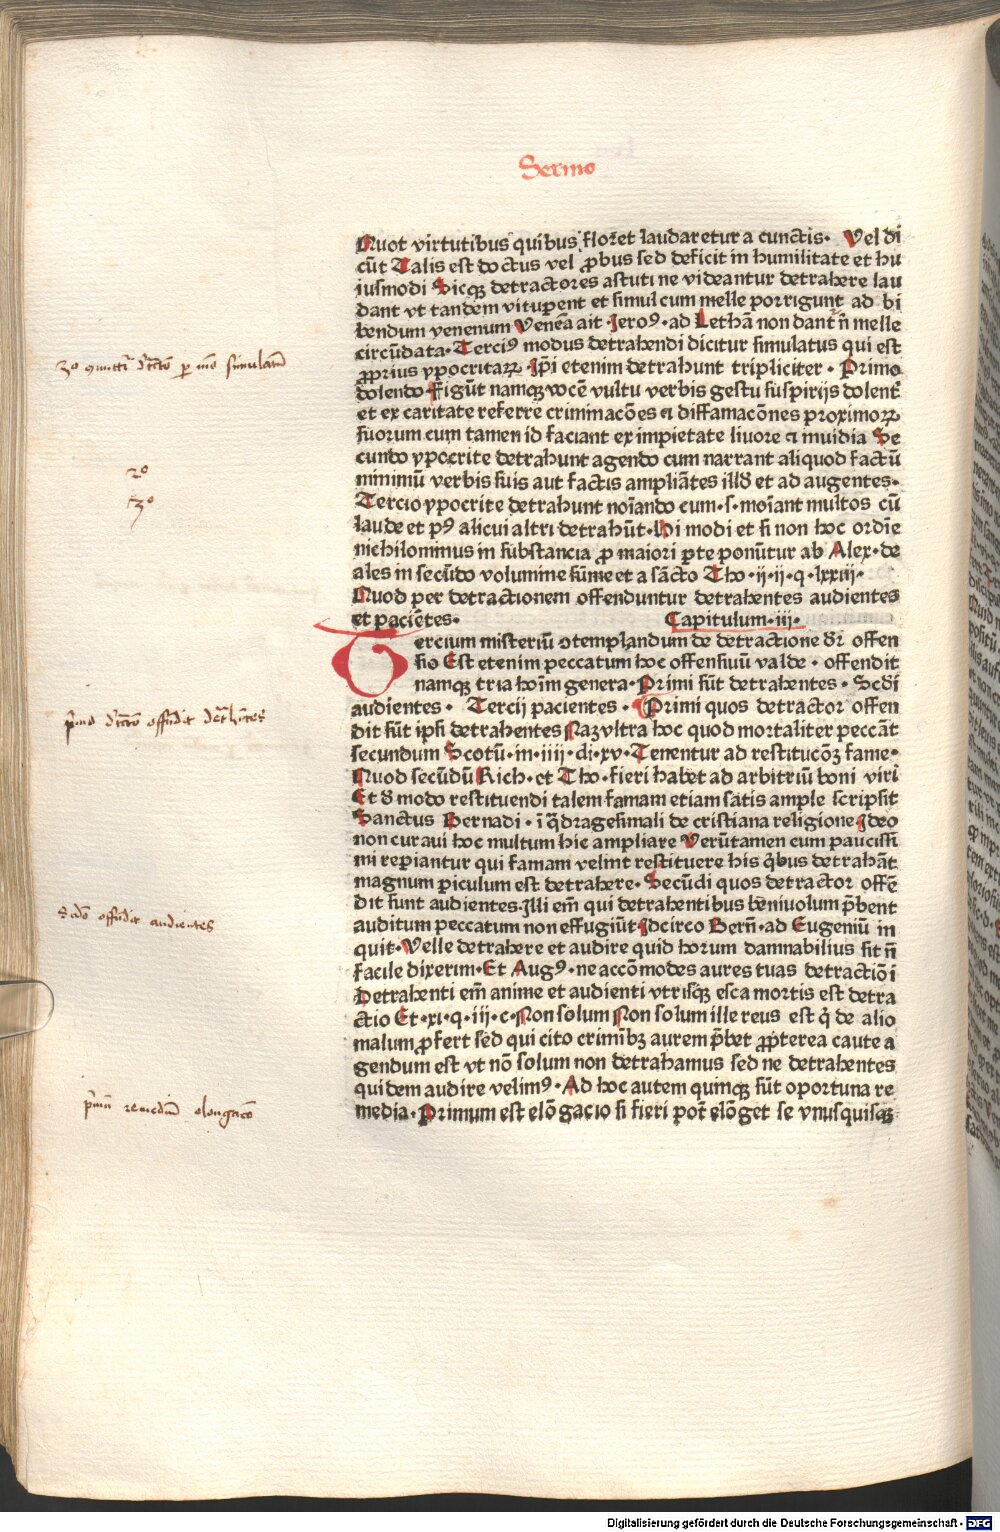 Sermo
Quot virtutibus quibus floret laudaretur a cunctis. Vel di
cūt Talis est doctus vel ꝓbus sed deficit in humilitate et hu
iusmodi Sicqꝫ detractores astuti ne videantur detrahere lau
dant vt tandem vituꝑent et simul cum melle porrigunt ad bi
bendum venenum Venēa ait Ieroꝰ. ad Lethā non dant̄ n̄ melle
circūdata. Terciꝰ modus detrahendi dicitur simulatus qui est
ꝓprius ypocritaꝝ. Ip̄i etenim detrahunt tripliciter. Primo
dolendo Figūt namqꝫ vocē vultu verbis gestu suspirijs dolent̄
et ex caritate referre criminacōes ⁊ diffamacōnes proximoꝝ
suorum cum tamen id faciant ex impietate liuore ⁊ inuidia Se
cundo ypocrite detrahunt agendo cum narrant aliquod factū
minimū verbis suis aut factis ampliātes illd̄ et ad augentes.
Tercio ypocrite detrahunt noīando cum.s.noīant multos cū
laude et pꝰ alicui altri detrahūt. Hi modi et si non hoc ordīe
nichilominus in substancia ꝓ maiori ꝑte ponūtur ab Alex.de
ales in secūdo volumine sūme et a sācto Tho.ij.ij.q.lxxiij.
Quod per detractionem offenduntur detrahentes audientes
et paciētes. Capitulum.iij.
Tercium misteriū ꝯtemplandum de detractione dr̄ offen
sio Est etenim peccatum hoc offensiuū valde. offendit
namqꝫ tria hoīm genera. Primi sūt detrahentes. Scd̄i
audientes. Tercij pacientes. Primi quos detractor offen
dit sūt ipsi detrahentes Naꝫ vltra hoc quod mortaliter peccāt
secundum Scotū.in.iiij.di.xv.Tenentur ad restitucōꝫ fame.
Quod secūdū Rich.et Tho.fieri habet ad arbitriū boni viri
Et d̄ modo restituendi talem famam etiam satis ample scripsit
Sanctus Bernadi.ī q̄dragesimali de cristiana religione Ideo
non curaui hoc multum hic ampliare Verūtamen cum paucissi
mi reꝑiantur qui famam velint restituere his q̄bus detrahāt
magnum ꝑiculum est detrahere. Secūdi quos detractor offē
dit sunt audientes. Illi em̄ qui detrahentibus beniuolum p̄bent
auditum peccatum non effugiūt. Idcirco Bern̄.ad Eugeniū in
quit. Velle detrahere et audire quid horum damnabilius sit n̄
facile dixerim. Et Augꝰ.ne accōmodes aures tuas detractiōi
Detrahenti em̄ anime et audienti vtrisqꝫ esca mortis est detra
ctio Et.xi.q.iii.c.Non solum Non solum ille reus est q̄ de alio
malum ꝓfert sed qui cito crimibꝫ aurem p̄bet ꝓpterea caute a
gendum est vt nō solum non detrahamus sed ne detrahentes
quidem audire velimꝰ. Ad hoc autem quinqꝫ sūt oportuna re
media. Primum est elōgacio si fieri pot̄ elōget se vnusquisqꝫ
2º
3º
primo dc̄cō offendit det̄hētes
Scdō offendit audientes
primū remediū elongaciō
Digitalisierung gefördert durch die Deutsche Forschungsgemeinschaft - DFG